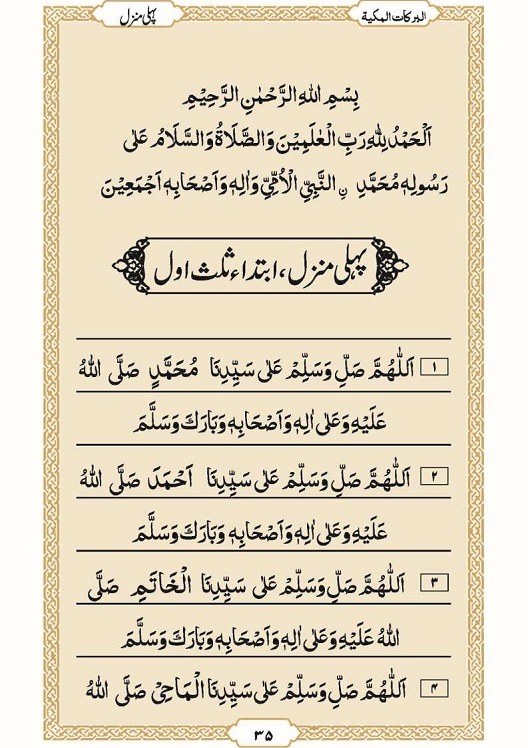 البركات المكية
پہلی منزل
بِسْمِ اللهِ الرَّحْمٰنِ الرَّحِيْمِ
اَلْحَمْدُ لِلّٰهِ رَبِّ الْعٰلَمِيْنَ وَالصَّلَاةُ وَالسَّلَامُ عَلٰى
رَسُوْلِهٖ مُحَمَّدِ نِ النَّبِيِّ الْاُمِّيِّ وَاٰلِهٖ وَاَصْحَابِهٖ اَجْمَعِيْنَ
پہلی منزل، ابتداء ثلث اول
۱ اَللّٰهُمَّ صَلِّ وَسَلِّمْ عَلٰى سَيِّدِنَا مُحَمَّدٍ صَلَّى اللهُ
عَلَيْهِ وَعَلٰى اٰلِهٖ وَاَصْحَابِهٖ وَبَارَكَ وَسَلَّمَ
۲ اَللّٰهُمَّ صَلِّ وَسَلِّمْ عَلٰى سَيِّدِنَا اَحْمَدَ صَلَّى اللهُ
عَلَيْهِ وَعَلٰى اٰلِهٖ وَاَصْحَابِهٖ وَبَارَكَ وَسَلَّمَ
۳ اَللّٰهُمَّ صَلِّ وَسَلِّمْ عَلٰى سَيِّدِنَا الْخَاتِمِ صَلَّى
اللهُ عَلَيْهِ وَعَلٰى اٰلِهٖ وَاَصْحَابِهٖ وَبَارَكَ وَسَلَّمَ
۴ اَللّٰهُمَّ صَلِّ وَسَلِّمْ عَلٰى سَيِّدِنَا الْمَاحِيْ صَلَّى اللهُ
۳۵